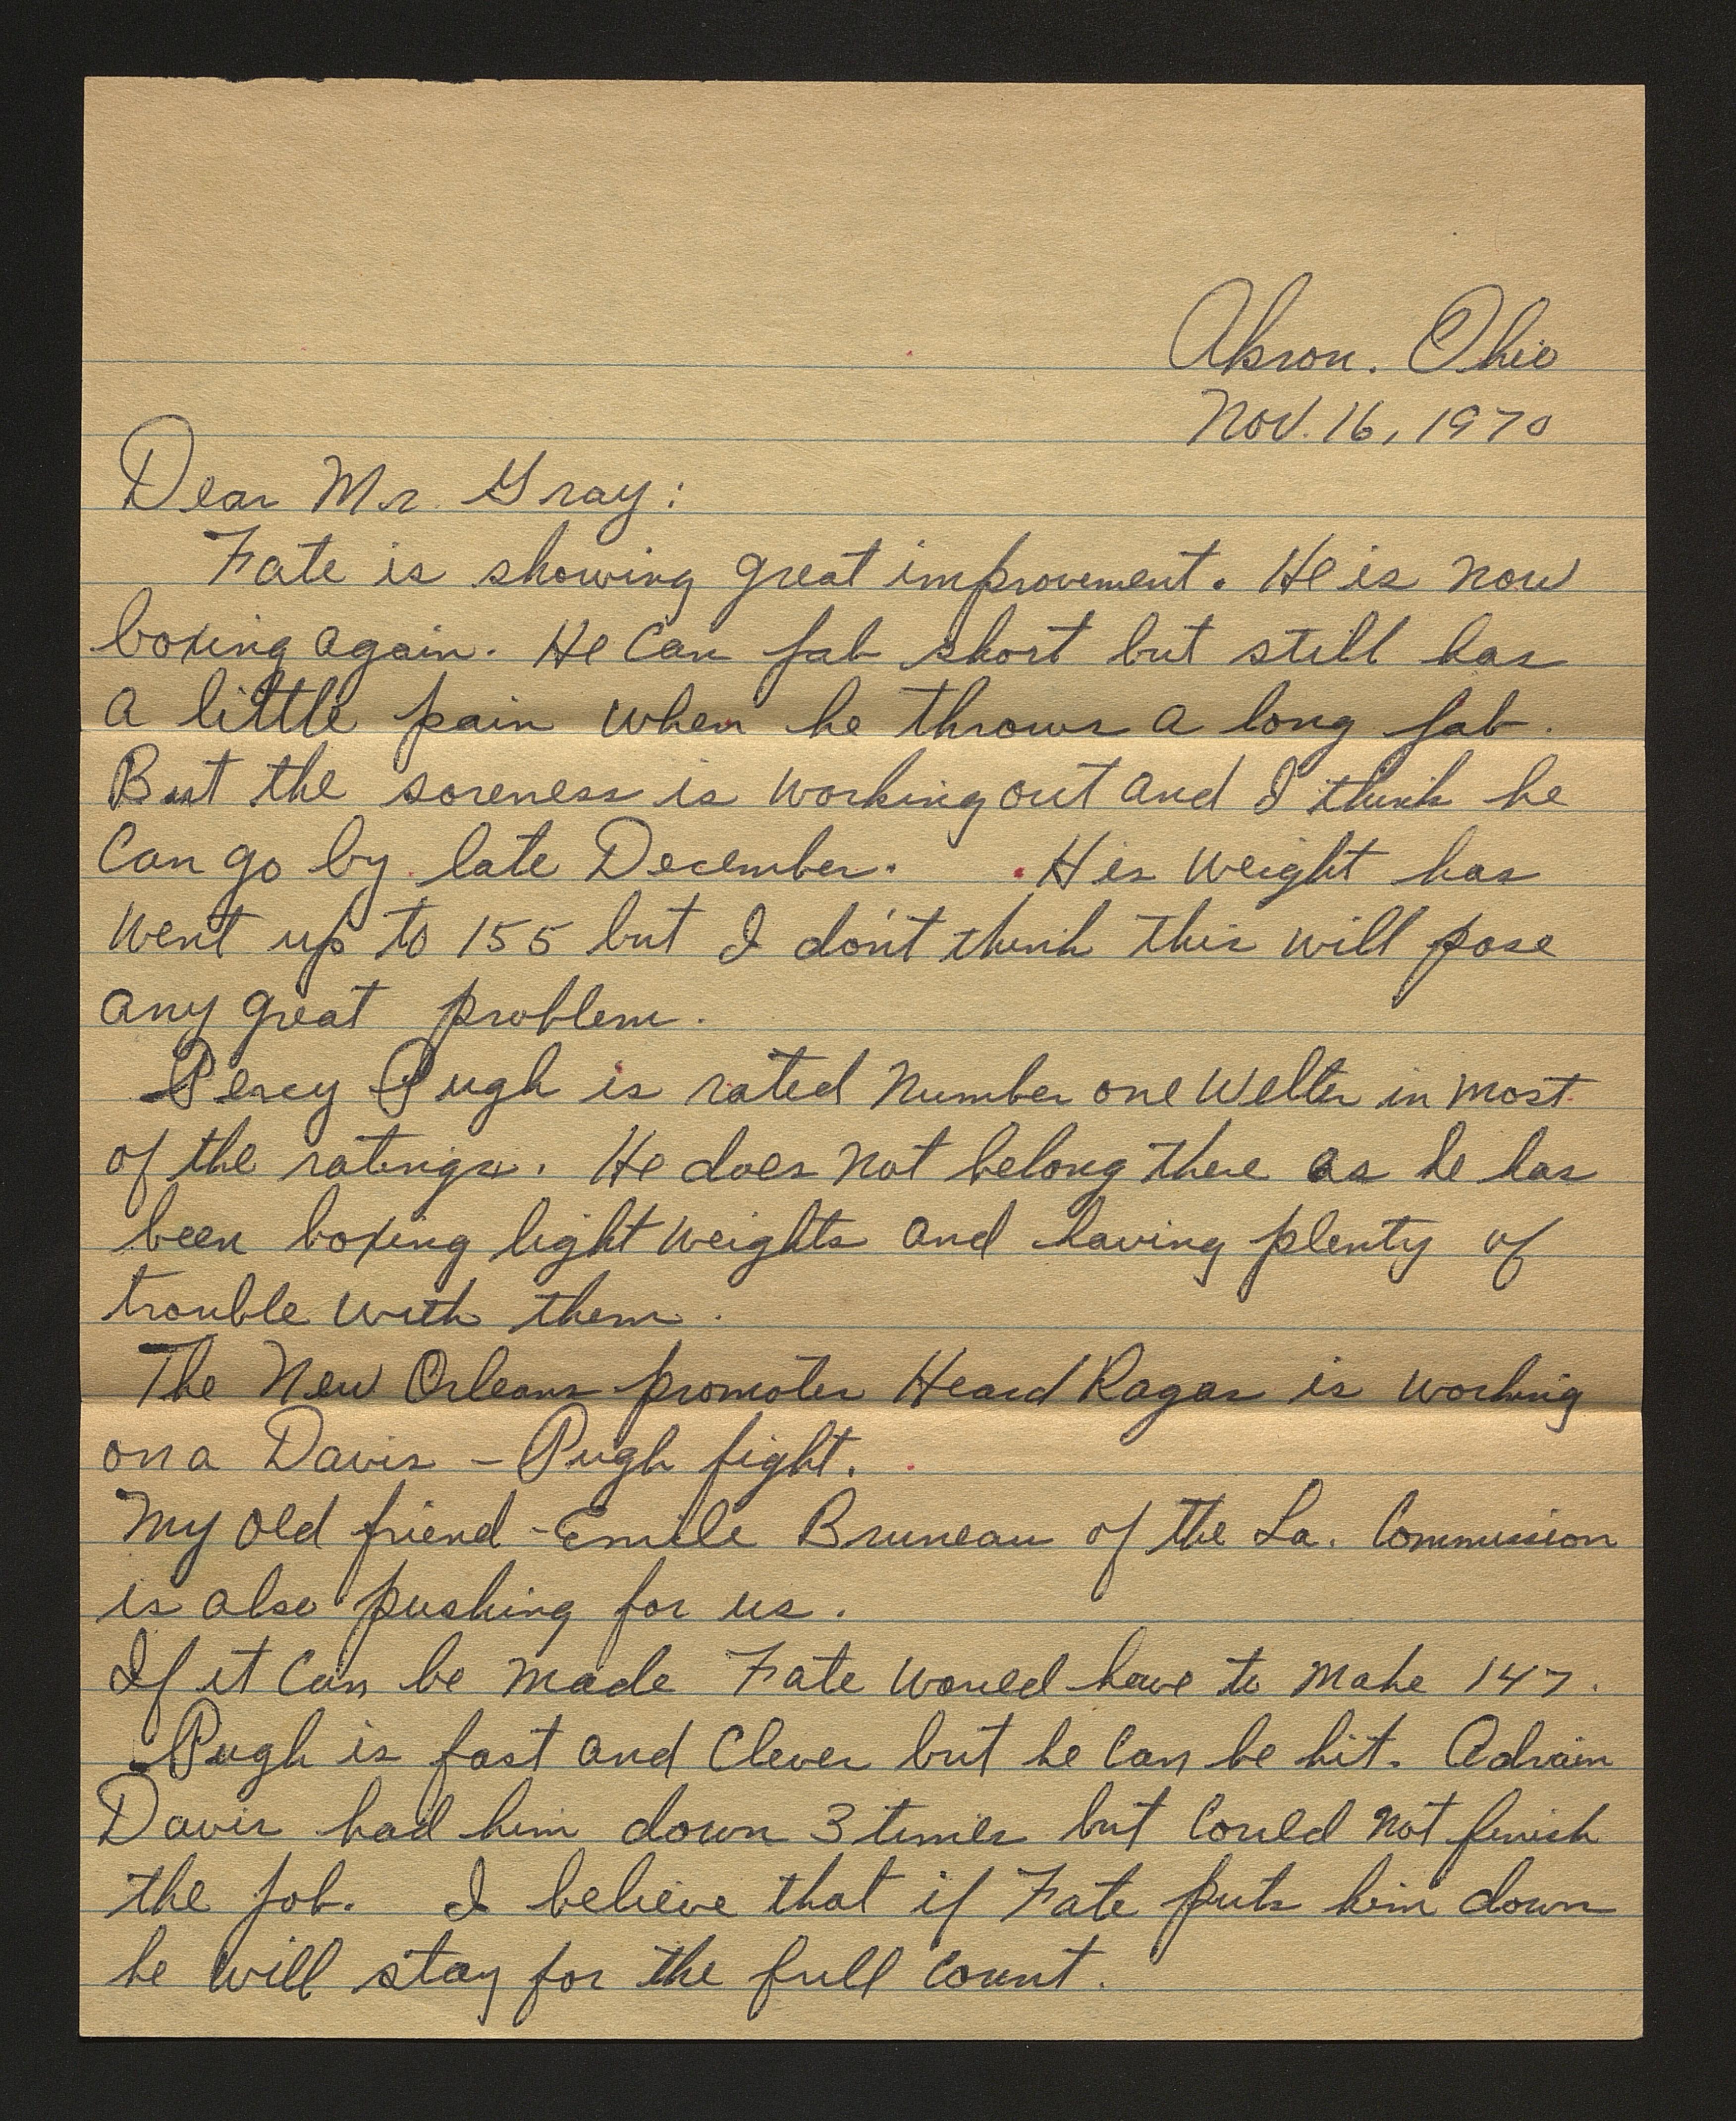 Akron. Ohio
Nov. 16, 1970
Dear Mr. Gray:
Fate is showing great improvement. He is now
boxing again. He can jab short but still has
a little pain when he throws a long jab.
But the soreness is working out and I think he
can go by late December. His weight has
went up to 155 but I don't think this will pose
any great problem.
Percy Pugh is rated number one welter in most
of the ratings. He does not belong there as he has
been boxing light weights and having plenty of
trouble with them.
The New Orleans promoter Heard Ragas is working
on a Davis - Pugh fight.
My old friend - Emile Bruneau of the La. Commission
is also pushing for us.
If it can be made Fate would have to make 147.
Pugh is fast and clever but he can be hit. Adrain
Davis had him down 3 times but could not finish
the job. I believe that if Fate puts him down
he will stay for the full count.